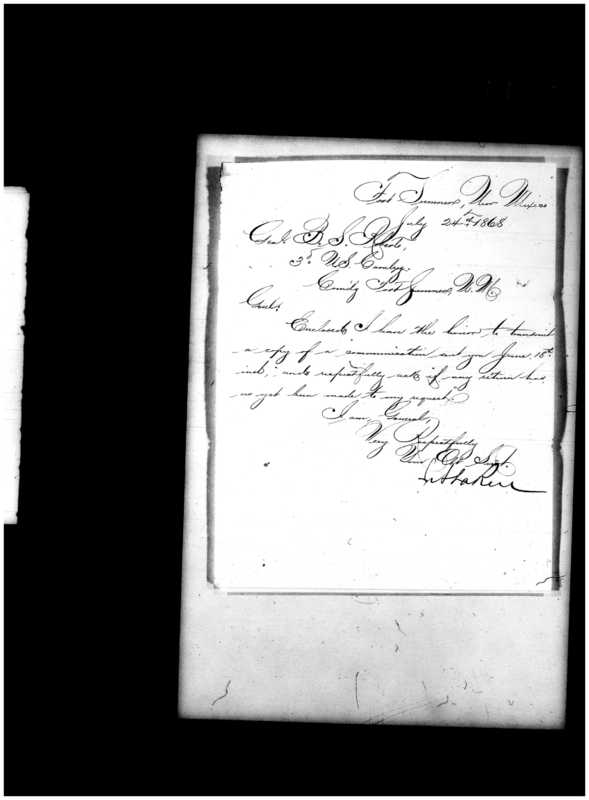 Fort Sumner, New Mexico
July 24th 1868
Genl. B. S. Roberts,
3d. U.S. Cavalry,
Comdg Fort Sumner, N. M.
Genl;
Enclosed I have the honor to transmit
a copy of a communication sent you June 18th
inst, and respectfully ask if any return has
as yet been made to my request.
I am, General,
Very Respectfully
Your Obt Svt.